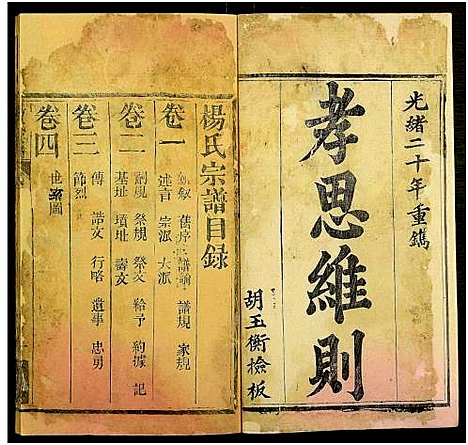 光緒二十年重鐫
孝思維則
胡玉衡撿板
楊氏宗譜目録
卷一
舊序 譜論 譜規 家規
述言 宗派 大派
卷二
祭規 祭文 給予 約據 記
基址 墳址 壽文
卷三
傳 誥文 行略 遺事 忠勇
節烈
卷四
世系圖